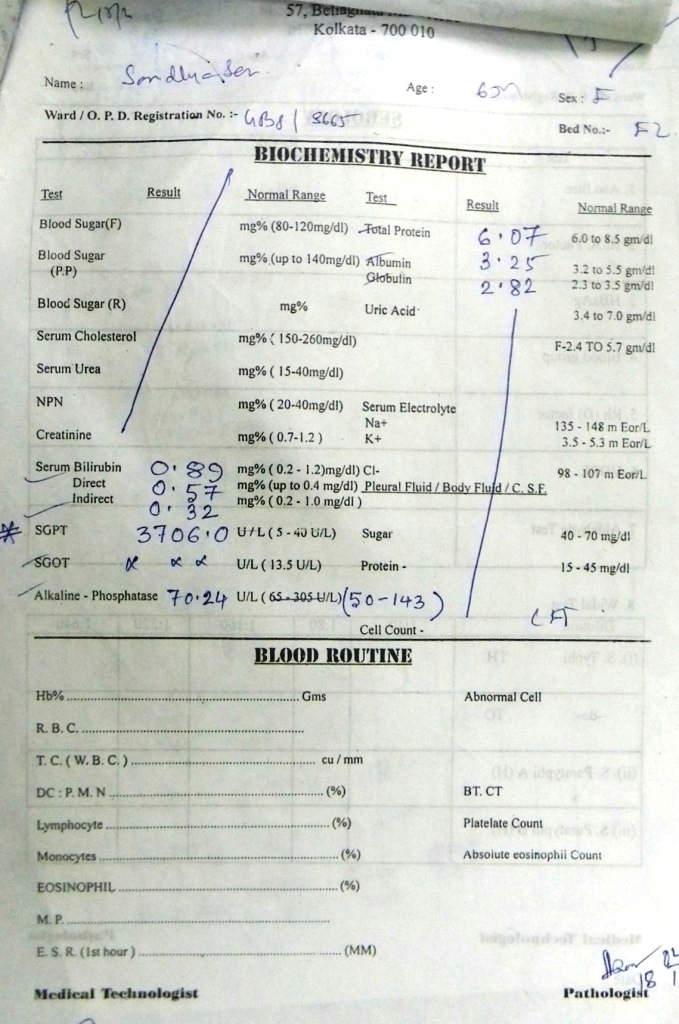 Kolkata - 700 010
Name : Sandhya Sen Age : Sex : F
Ward / O. P. D. Registration No. :- GB8 / 3665 Bed No.:- F2
BIOCHEMISTRY REPORT
Test Result Normal Range Test Result Normal Range
Blood Sugar(F) mg% (80-120mg/dl) Total Protein 6.07 6.0 to 8.5 gm/dl
Blood Sugar mg% (up to 140mg/dl) Albumin 3.25 3.2 to 5.5 gm/dl
(P.P) Globulin 2.82 2.3 to 3.5 gm/dl
Blood Sugar (R) mg% Uric Acid 3.4 to 7.0 gm/dl
Serum Cholesterol mg% ( 150-260mg/dl) F-2.4 TO 5.7 gm/dl
Serum Urea mg% ( 15-40mg/dl)
NPN mg% ( 20-40mg/dl) Serum Electrolyte
Na+ 135 - 148 m Eor/L
Creatinine mg% ( 0.7-1.2 ) K+ 3.5 - 5.3 m Eor/L
Serum Bilirubin 0.89 mg% ( 0.2 - 1.2)mg/dl) Cl- 98 - 107 m Eor/L
Direct 0.57 mg% (up to 0.4 mg/dl) Pleural Fluid / Body Fluid / C. S.F.
Indirect 0.32 mg% ( 0.2 - 1.0 mg/dl )
SGPT 3706.0 U/L ( 5 - 40 U/L) Sugar 40 - 70 mg/dl
SGOT U/L ( 13.5 U/L) Protein - 15 - 45 mg/dl
Alkaline - Phosphatase 70.24 U/L ( 65 - 305 U/L) (50-143) LFT
Cell Count -
BLOOD ROUTINE
Hb% Gms Abnormal Cell
R. B. C.
T. C. ( W. B. C. ) cu / mm
DC : P. M. N (%) BT. CT
Lymphocyte (%) Platelate Count
Monocytes (%) Absolute eosinophil Count
EOSINOPHIL (%)
M. P.
E. S. R. (1st hour ) (MM)
Medical Technologist Pathologist